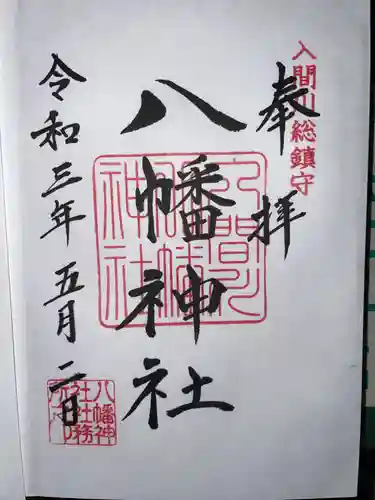 入間川総鎮守
奉拝
八幡神社
入間川八幡神社
令和三年五月二日
八幡神社社務所